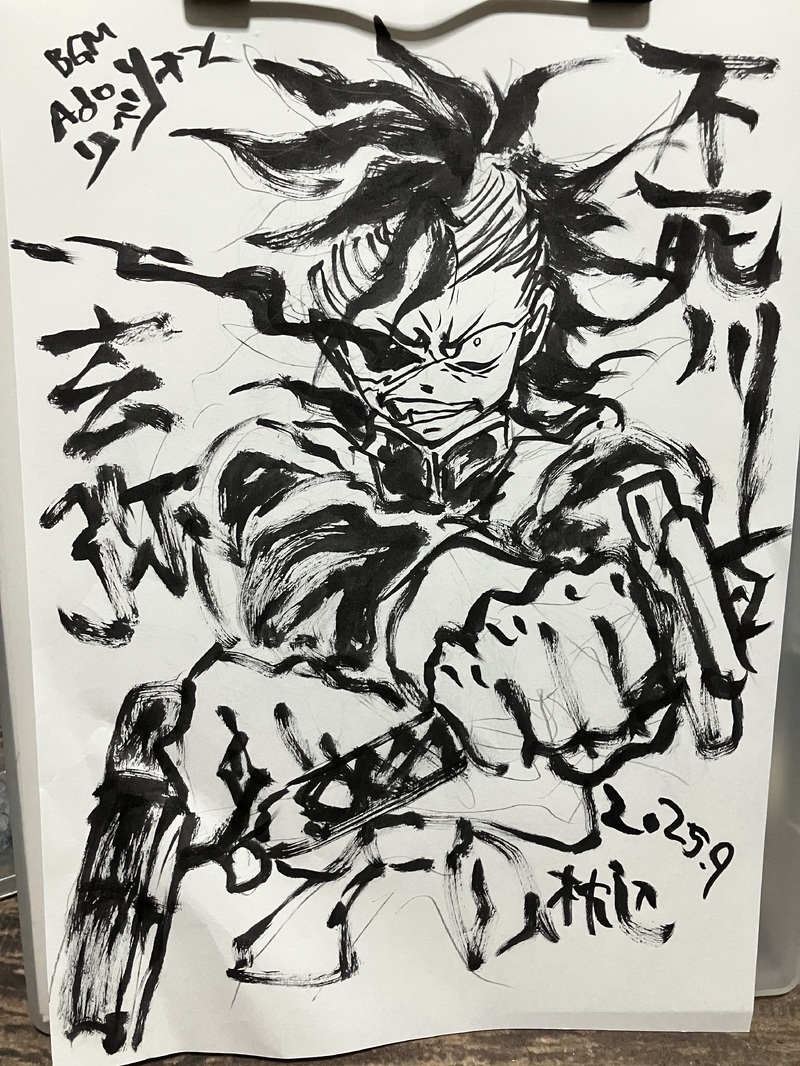 BGM
Ado
リベリオン
不死川
玄弥
2025.9